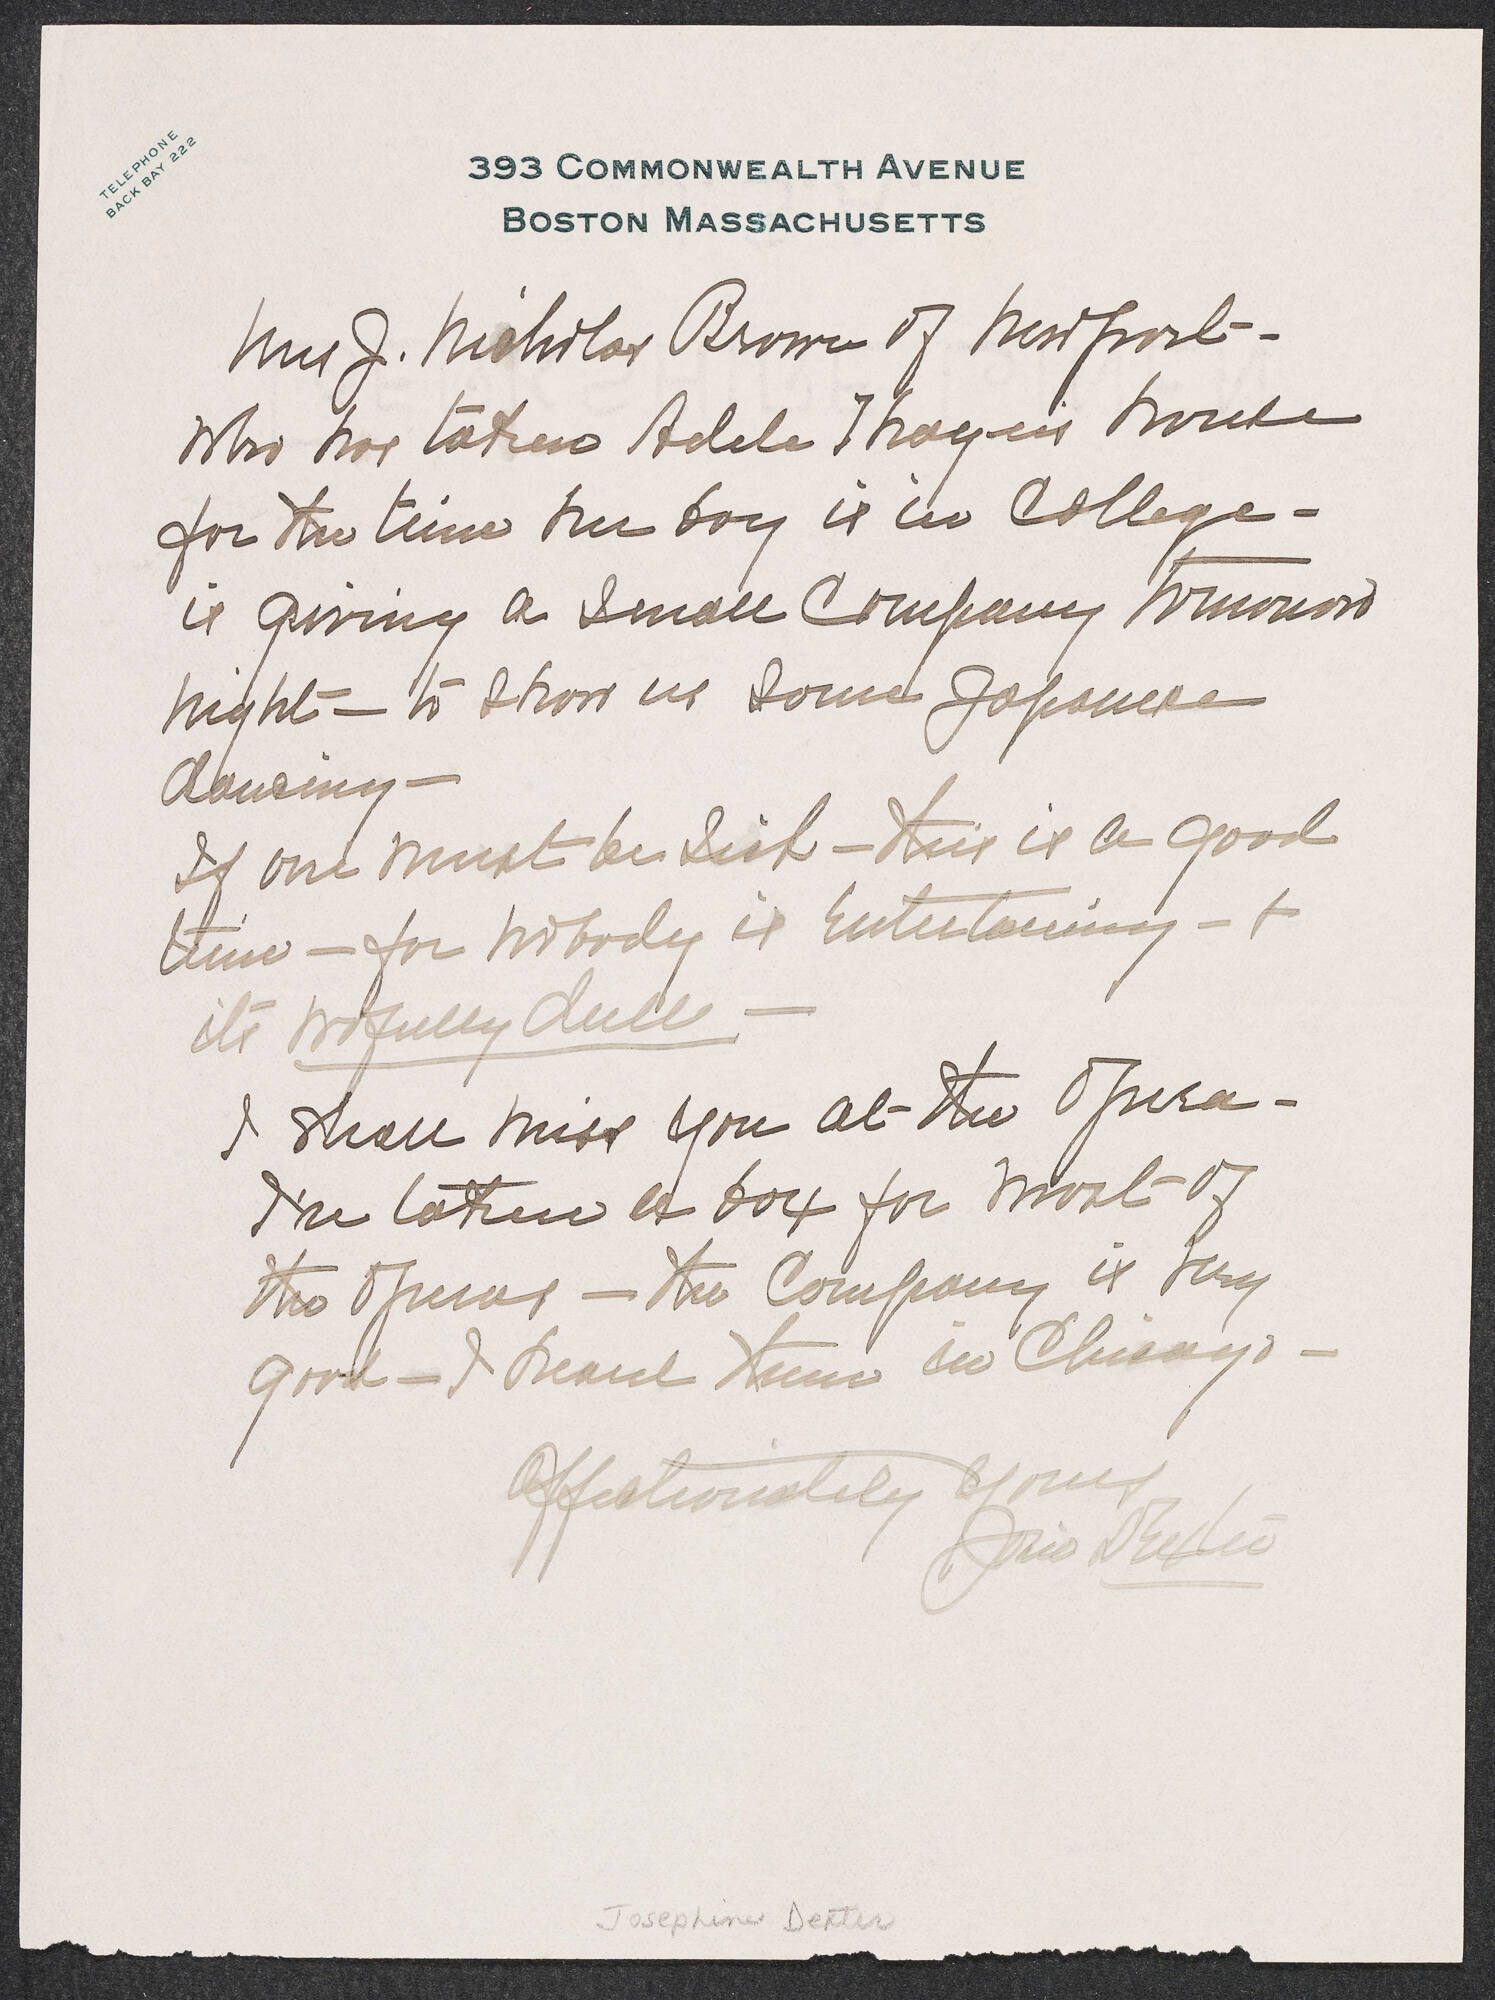 TELEPHONE
BACK BAY 222
393 COMMONWEALTH AVENUE
BOSTON MASSACHUSETTS
Mrs J. Nicholas Brown of Newport -
who has taken Adele Thayer's house
for the time her boy is in College -
is giving a small Company tomorrow
night - to show us some Japanese
dancing -
If one must be sick - this is a good
time - for nobody is entertaining - +
its wofully dull -
I shall miss you at the Opera -
I've taken a box for most of
the operas - the Company is very
good - I heard them in Chicago -
Affectionately yours
Josie Dexter
Josephine Dexter